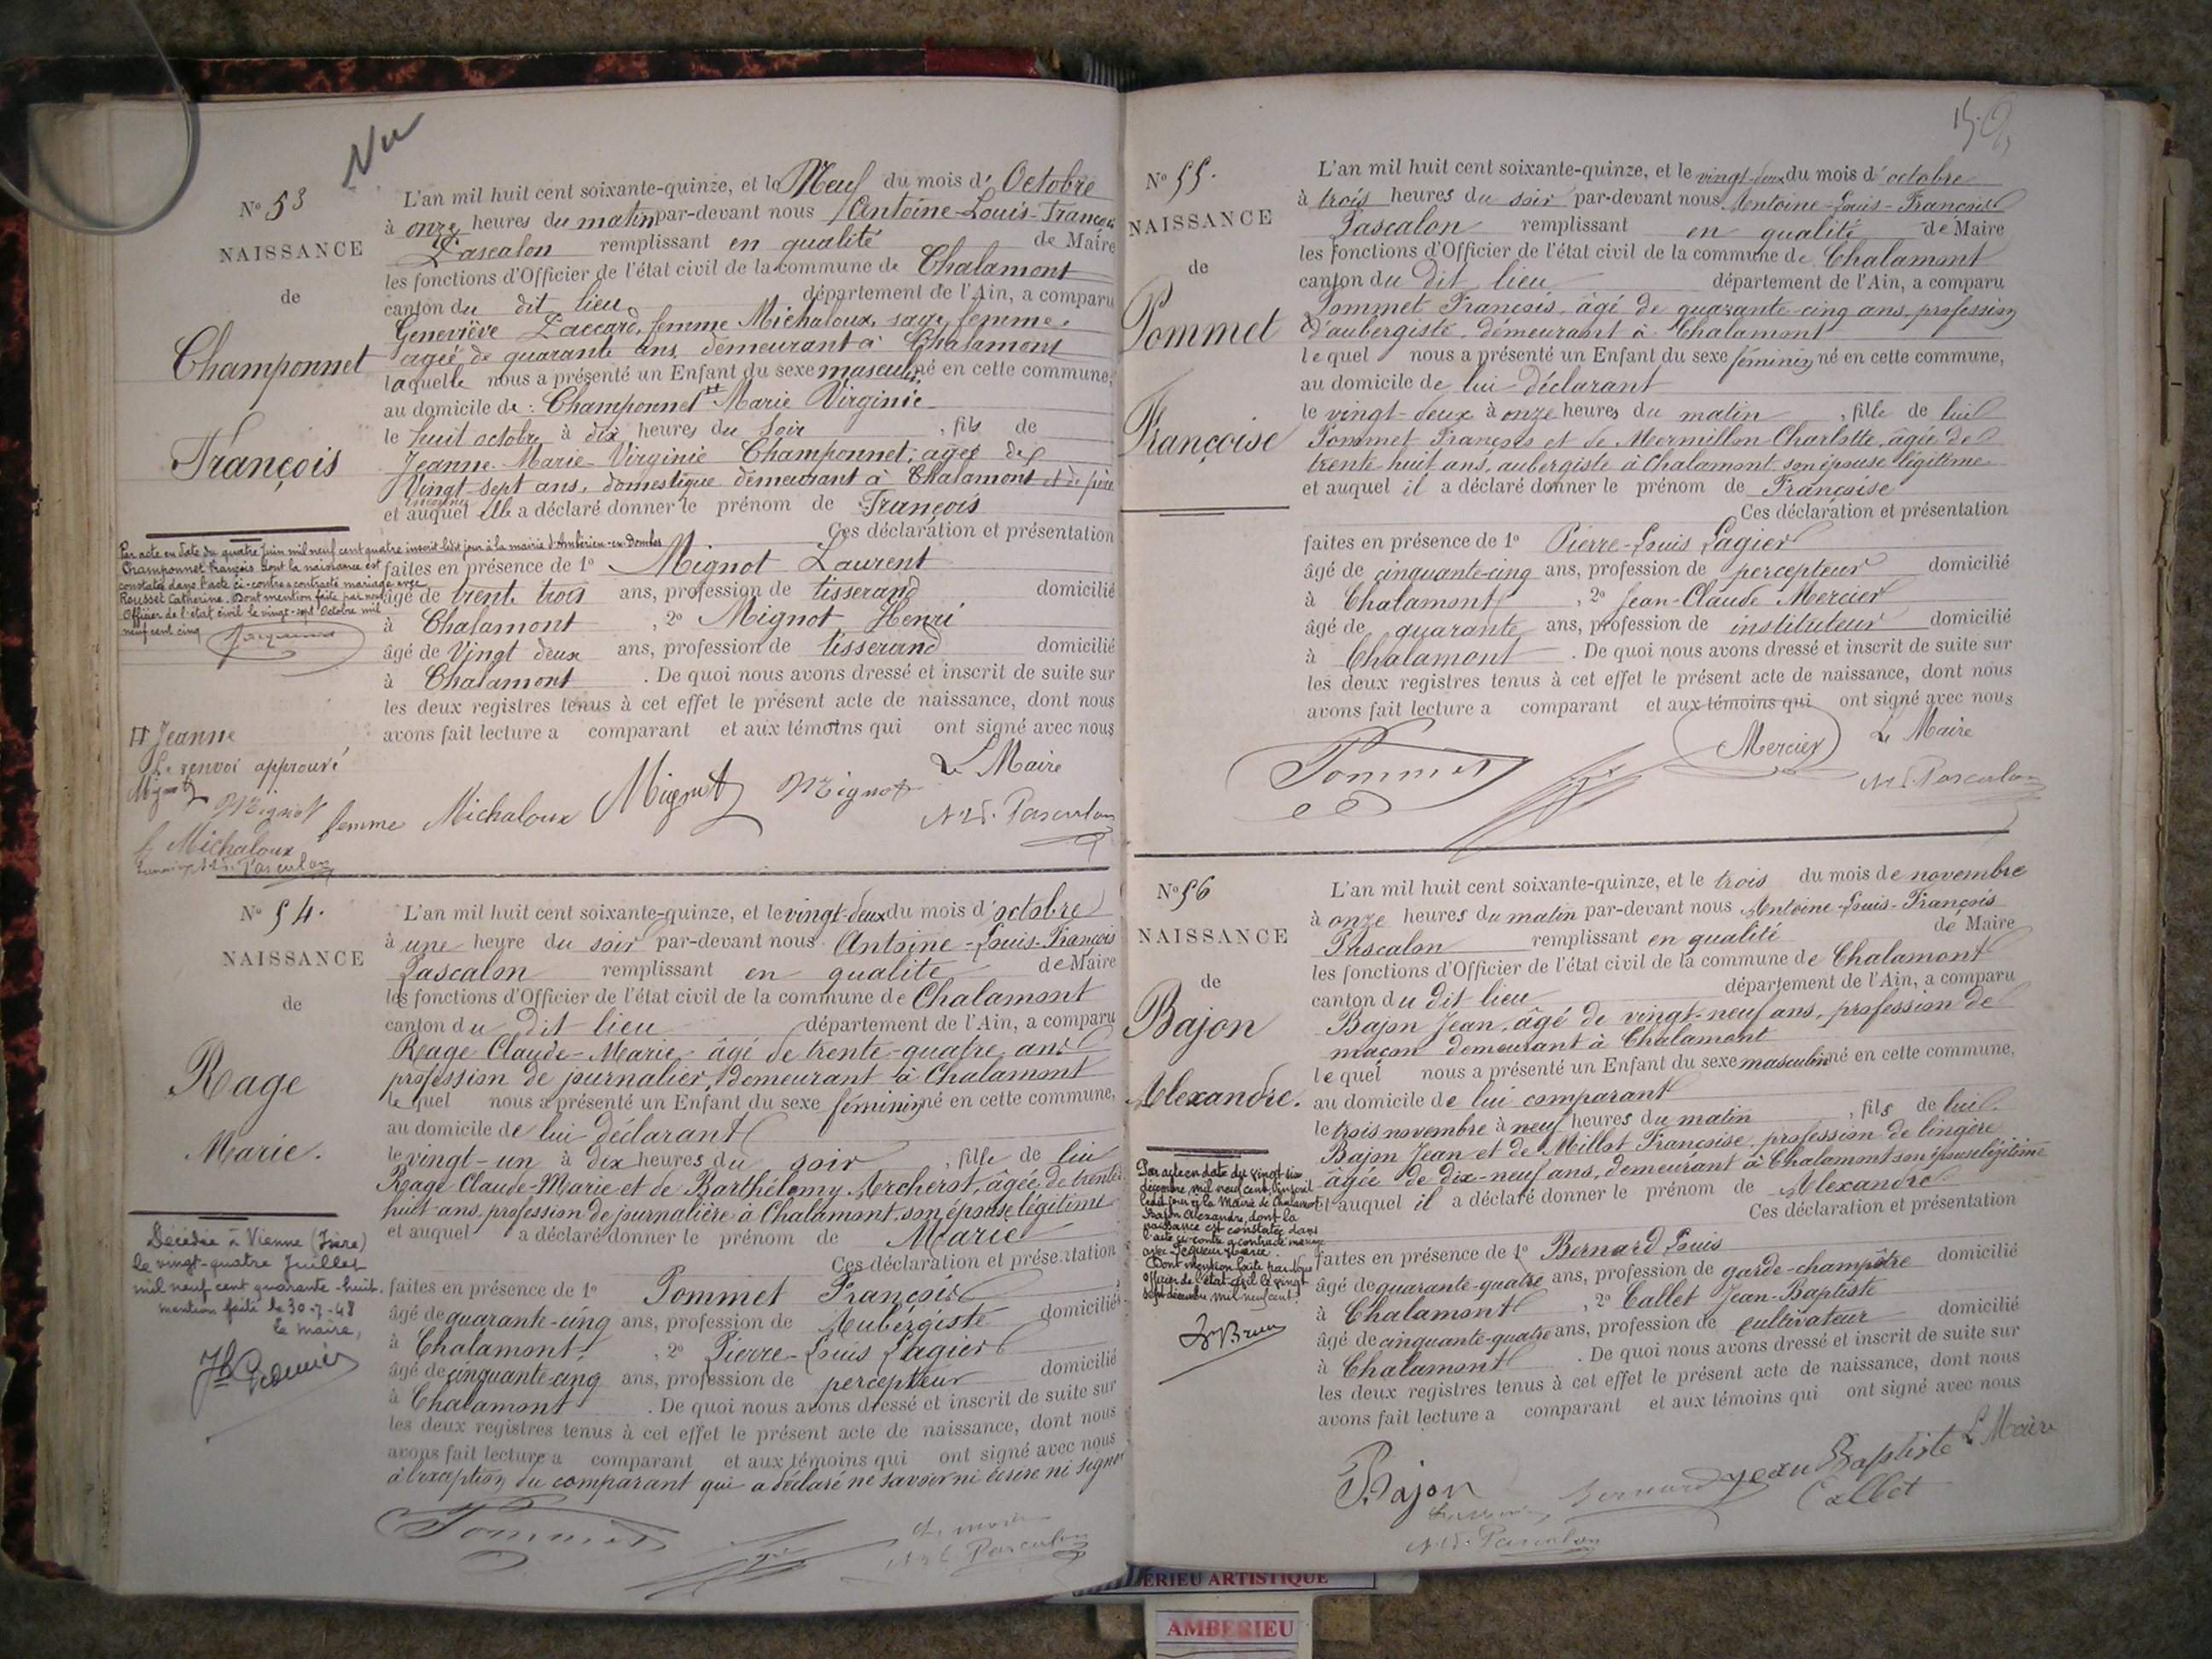 Vu
N° 53
NAISSANCE
de
Champonnet
François
L'an mil huit cent soixante-quinze, et le Neuf du mois d'Octobre
à onze heures du matin par-devant nous Antoine-Louis-François
Pascalon remplissant en qualité de Maire
les fonctions d'Officier de l'état civil de la commune de Chalamont
canton du dit lieu département de l'Ain, a comparu
Geneviève Laccard, femme Michaloux, sage femme.
agée de quarante ans, demeurant à Chalamont
laquelle nous a présenté un Enfant du sexe masculin né en cette commune,
au domicile de : Champonnet # Marie Virginie
le huit octobre à dix heures du soir, fils de
Jeanne-Marie-Virginie Champonnet, agée de
Vingt-sept ans, domestique demeurant à Chalamont et de père
inconnu
et auquel elle a déclaré donner le prénom de François
Ces déclaration et présentation
faites en présence de 1° Mignot Laurent
âgé de trente trois ans, profession de tisserand domicilié
à Chalamont, 2° Mignot Henri
âgé de Vingt deux ans, profession de tisserand domicilié
à Chalamont. De quoi nous avons dressé et inscrit de suite sur
les deux registres tenus à cet effet le présent acte de naissance, dont nous
avons fait lecture a comparant et aux témoins qui ont signé avec nous
Par acte en date du quatre Juin mil neuf cent quatre inscrit ledit jour à la mairie d'Ambérieu-en-Dombes
Champonnet François dont la naissance est
constatée dans l'acte ci-contre a contracté mariage avec
Rousset Catherine. Dont mention faite par nous
Officier de l'état civil le vingt-sept Octobre mil
neuf cent cinq
# Jeanne
Le renvoi approuvé
Mignot Mignot
f. Michaloux
Pascalon
femme Michaloux Mignot Mignot
Le Maire
Pascalon
N° 54.
NAISSANCE
de
Rage
Marie.
L'an mil huit cent soixante-quinze, et le vingt-deux du mois d'octobre
à une heure du soir par-devant nous Antoine-Louis-François
Pascalon remplissant en qualité de Maire
les fonctions d'Officier de l'état civil de la commune de Chalamont
canton du dit lieu département de l'Ain, a comparu
Rage Claude-Marie âgé de trente-quatre ans
profession de journalier, demeurant à Chalamont
lequel nous a présenté un Enfant du sexe féminin né en cette commune,
au domicile de lui déclarant
le vingt-un à dix heures du soir, fille de lui
Rage Claude-Marie et de Barthélemy Archerot, âgée de trente
huit ans, profession de journalière à Chalamont, son épouse légitime
et auquel a déclaré donner le prénom de Marie
Ces déclaration et présentation
faites en présence de 1° Pommet François
âgé de quarante-cinq ans, profession de Aubergiste domicilié
à Chalamont, 2° Pierre-Louis Lagier
âgé de cinquante-cinq ans, profession de percepteur domicilié
à Chalamont. De quoi nous avons dressé et inscrit de suite sur
les deux registres tenus à cet effet le présent acte de naissance, dont nous
avons fait lecture a comparant et aux témoins qui ont signé avec nous
à l'exception du comparant qui a déclaré ne savoir ni écrire ni signer
Décédée à Vienne (Isère)
le vingt-quatre Juillet
mil neuf cent quarante-huit.
mention faite le 30-7-48
le maire,
Pommet
Le maire
Pascalon
N° 55.
NAISSANCE
de
Pommet
Françoise
L'an mil huit cent soixante-quinze, et le vingt-deux du mois d'octobre
à trois heures du soir par-devant nous Antoine-Louis-François
Pascalon remplissant en qualité de Maire
les fonctions d'Officier de l'état civil de la commune de Chalamont
canton du dit lieu département de l'Ain, a comparu
Pommet François, âgé de quarante-cinq ans, profession
d'aubergiste, demeurant à Chalamont
lequel nous a présenté un Enfant du sexe féminin né en cette commune,
au domicile de lui déclarant
le vingt-deux à onze heures du matin, fille de lui
Pommet François et de Mermillon Charlotte, âgée de
trente huit ans, aubergiste à Chalamont, son épouse légitime
et auquel il a déclaré donner le prénom de Françoise
Ces déclaration et présentation
faites en présence de 1° Pierre-Louis Lagier
âgé de cinquante-cinq ans, profession de percepteur domicilié
à Chalamont, 2° Jean-Claude Mercier
âgé de quarante ans, profession de instituteur domicilié
à Chalamont. De quoi nous avons dressé et inscrit de suite sur
les deux registres tenus à cet effet le présent acte de naissance, dont nous
avons fait lecture a comparant et aux témoins qui ont signé avec nous
Pommet
Mercier
Le Maire
Pascalon
N° 56
NAISSANCE
de
Bajon
Alexandre.
L'an mil huit cent soixante-quinze, et le trois du mois de novembre
à onze heures du matin par-devant nous Antoine-Louis-François
Pascalon remplissant en qualité de Maire
les fonctions d'Officier de l'état civil de la commune de Chalamont
canton du dit lieu département de l'Ain, a comparu
Bajon Jean, âgé de vingt-neuf ans, profession de
maçon demeurant à Chalamont
lequel nous a présenté un Enfant du sexe masculin né en cette commune,
au domicile de lui comparant
le trois novembre à neuf heures du matin, fils de lui
Bajon Jean et de Millot Françoise, profession de lingère
âgée de dix-neuf ans, demeurant à Chalamont son épouse légitime
et auquel il a déclaré donner le prénom de Alexandre
Ces déclaration et présentation
faites en présence de 1° Bernard Louis
âgé de quarante-quatre ans, profession de garde-champêtre domicilié
à Chalamont, 2° Callet Jean-Baptiste
âgé de cinquante-quatre ans, profession de cultivateur domicilié
à Chalamont. De quoi nous avons dressé et inscrit de suite sur
les deux registres tenus à cet effet le présent acte de naissance, dont nous
avons fait lecture a comparant et aux témoins qui ont signé avec nous
Par acte en date du vingt six
décembre mil neuf cent, inscrit
ledit jour à la Mairie de Chalamont
Bajon Alexandre, dont la
naissance est constatée dans
l'acte ci-contre a contracté mariage
avec
Dont mention faite par nous
Officier de l'état civil le vingt
sept décembre mil neuf cent.
Brun
Bajon
Bernard
Jean Baptiste
Callet
Le Maire
Pascalon
ERIEU ARTISTIQUE
AMBERIEU